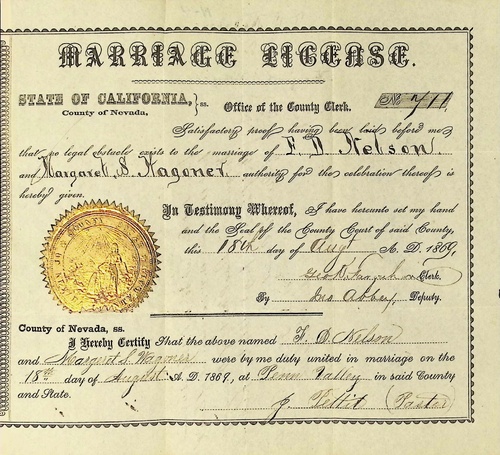 MARRIAGE LICENSE.
STATE OF CALIFORNIA, } ss. Office of the County Clerk. No 711
County of Nevada,
Satisfactory proof having been laid before me
that no legal obstacle exists to the marriage of F. D Nelson
and Margaret S Wagoner authority for the celebration thereof is
hereby given.
In Testimony Whereof, I have hereunto set my hand
and the Seal of the County Court of said County,
this 18th day of Aug A. D. 1869,
Geo Clerk.
By Jno Abbey, Deputy.
County of Nevada, ss.
I Hereby Certify That the above named F. D. Nelson
and Margaret S Wagoner were by me duly united in marriage on the
18th day of August A. D. 1869, at Penn Valley in said County
and State.
J. Pettit (Pastor)